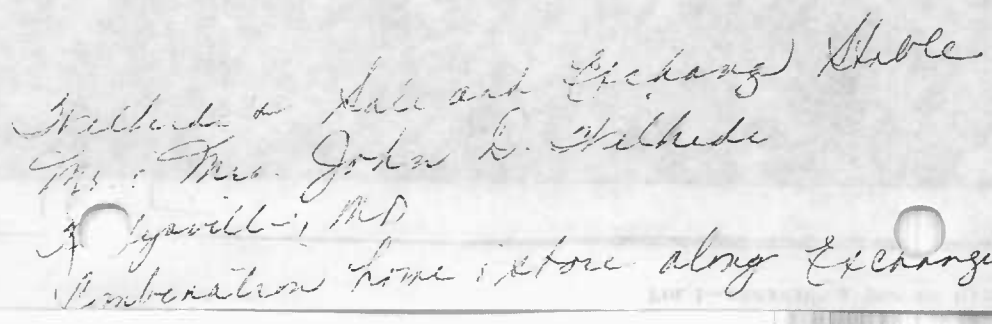 Wilhide's Sale and Exchange Stable
Mr & Mrs. John D. Wilhide
Keysville, MD
Combination home & store along Exchange